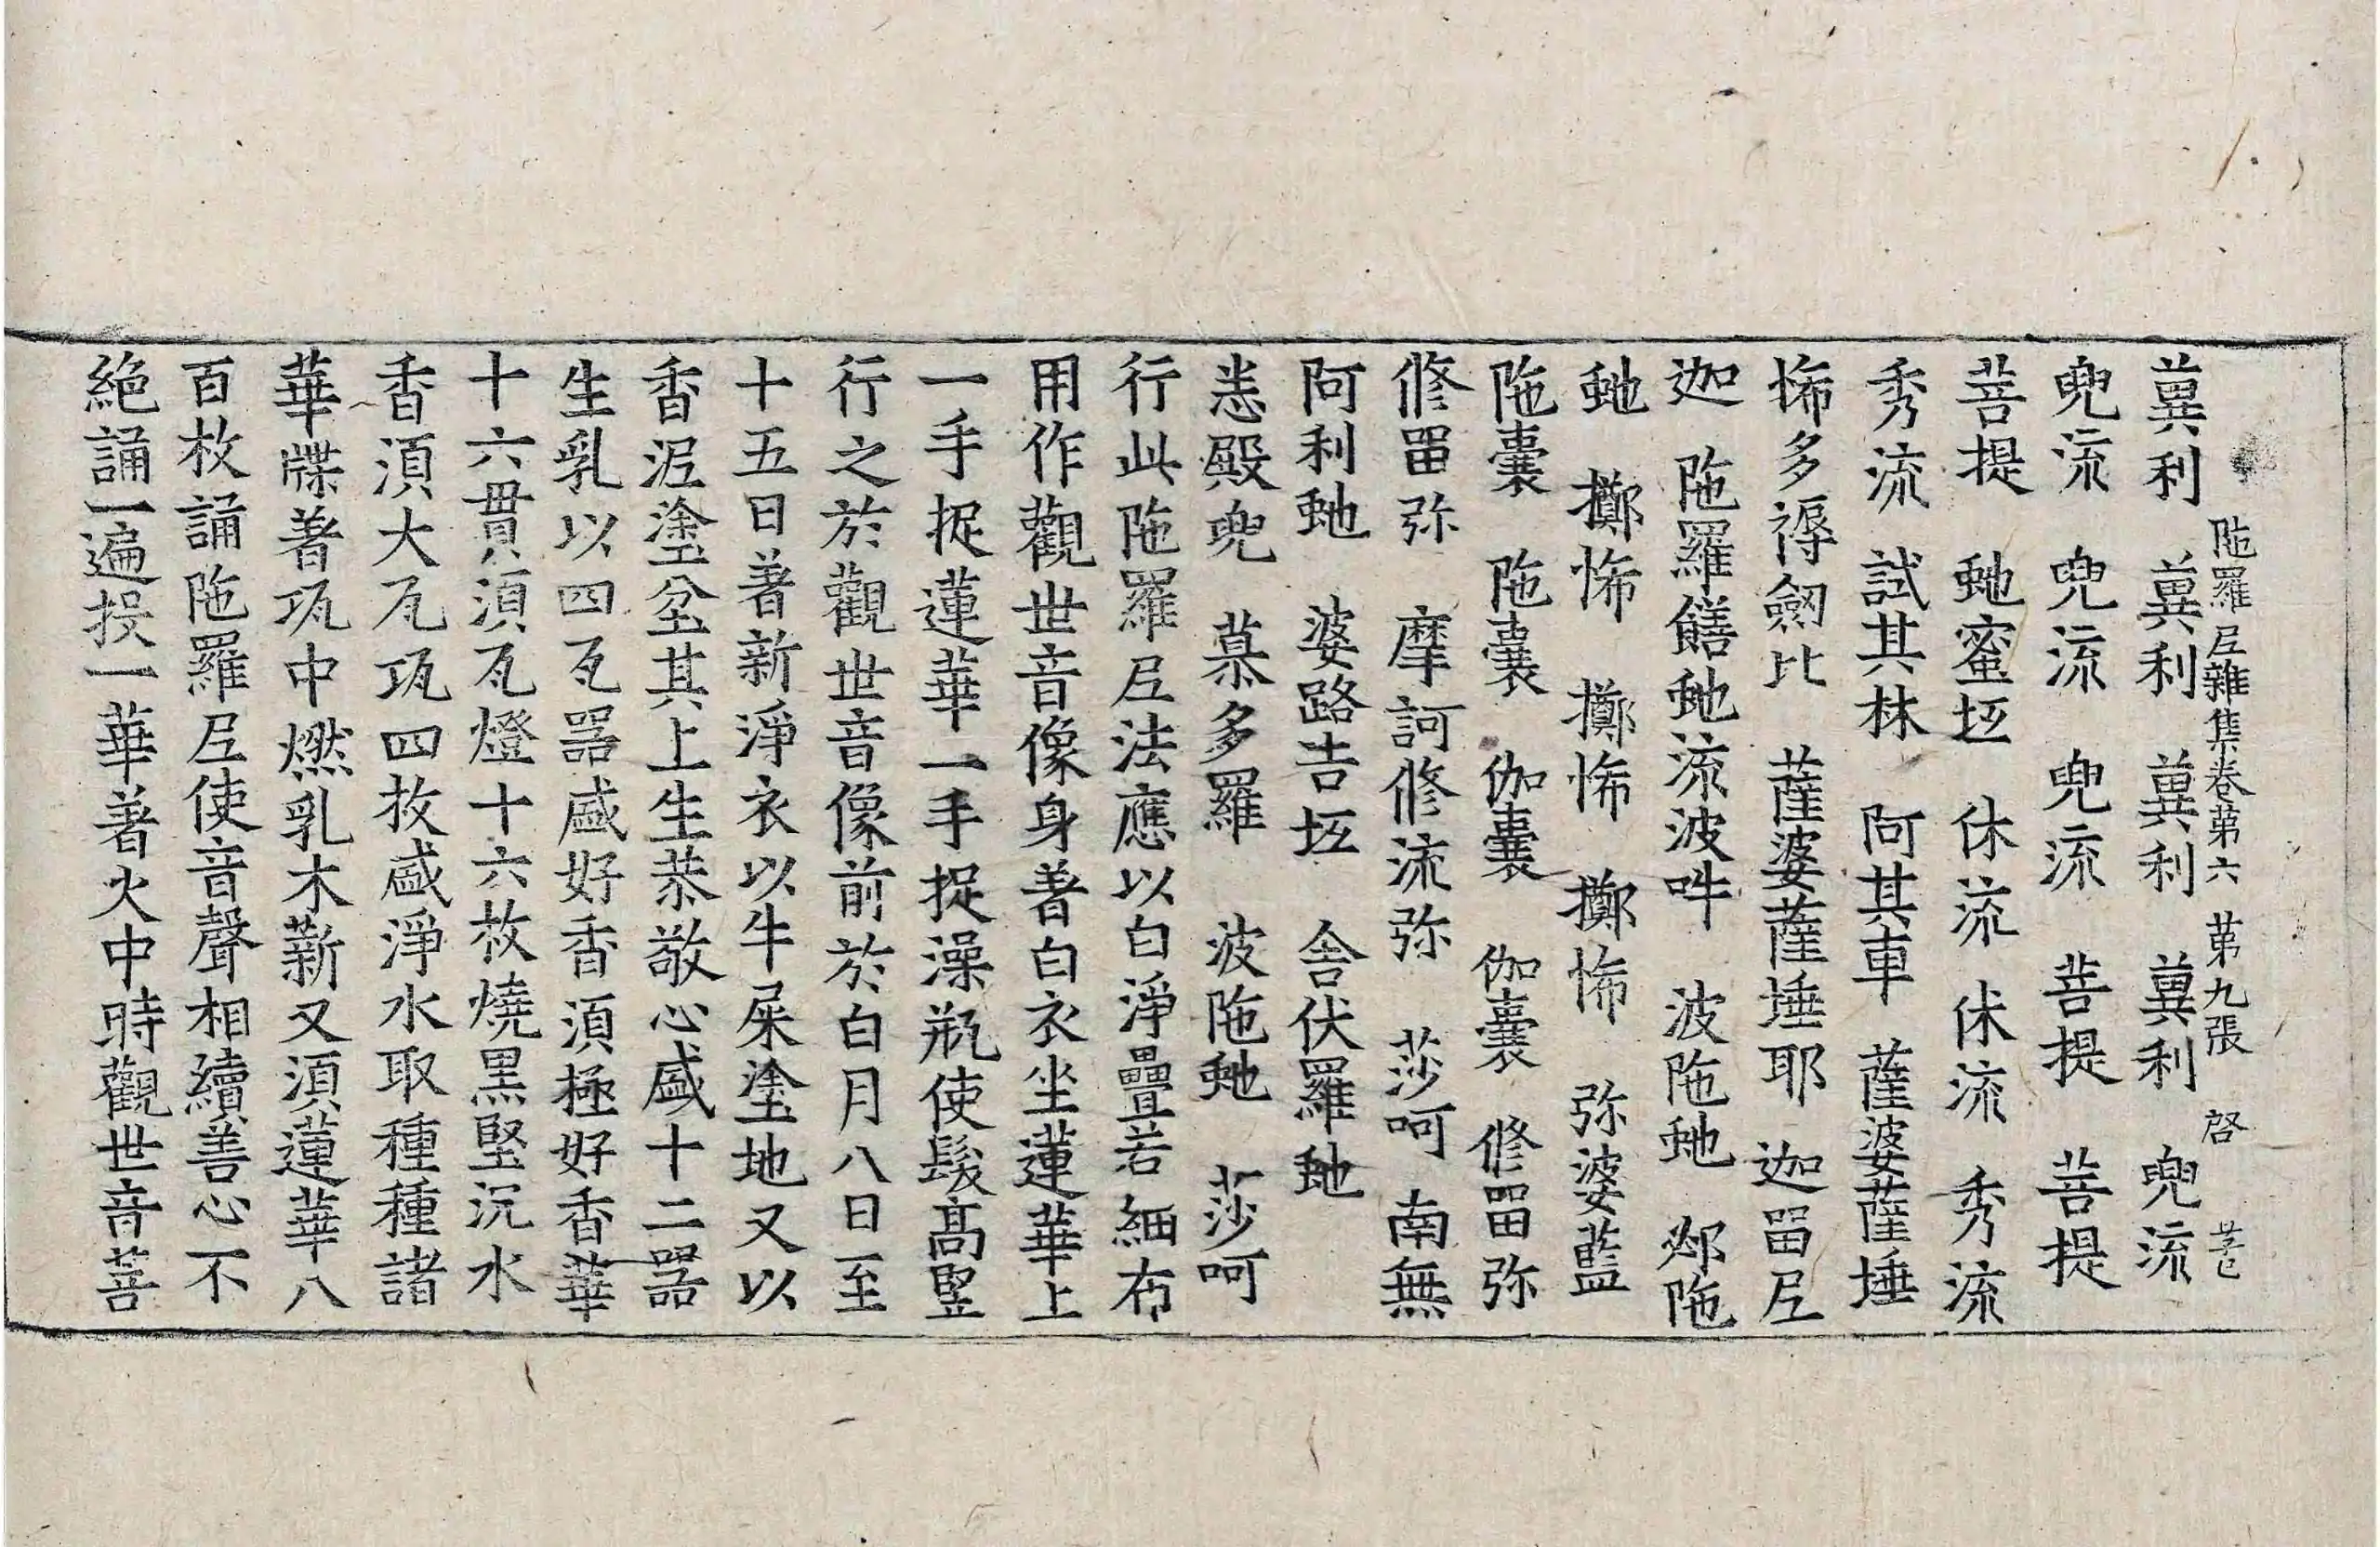 陁羅尼雜集卷第六 第九張 啓
蓂利 蓂利 蓂利 蓂利 兜流
兜流 兜流 兜流 菩提 菩提
菩提 虵蜜坻 休流 休流 秀流
秀流 試其林 阿其車 薩婆薩埵
悕多褥劒比 薩婆薩埵耶 迦留尼
迦 陁羅饍虵流波吽 波陁虵 郯陁
虵 擲悕 擲悕 擲悕 弥婆藍
陁囊 陁囊 伽囊 伽囊 修留弥
修留弥 摩訶修流弥 莎呵 南無
阿利虵 婆路吉坻 舍伏羅虵
悉殿兜 慕多羅 波陁虵 莎呵
行此陁羅尼法應以白淨疊若緬布
用作觀世音像身著白衣坐蓮華上
一手捉蓮華一手捉澡瓶使髮髙竪
行之於觀世音像前於白月八日至
十五日著新淨衣以牛屎塗地又以
香泥塗坌其上生恭敬心盛十二器
生乳以四瓦器盛好香湏極好香華
十六貫湏瓦燈十六枚燒黒堅沉水
香湏大瓦瓨四枚盛淨水取種種諸
華牒著瓨中燃乳木薪又湏蓮華八
百枚誦陁羅尼使音聲相續善心不
絶誦一遍投一華著火中時觀世音菩